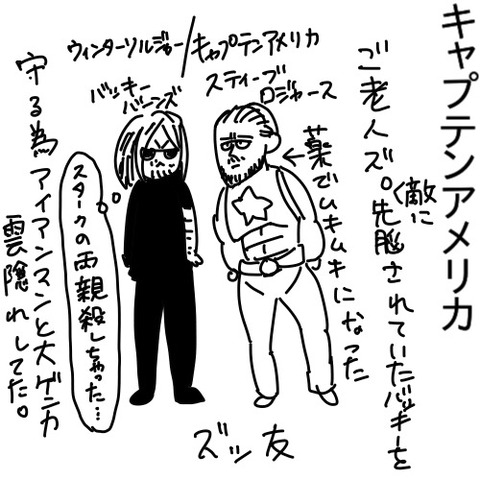 キャプテンアメリカ
ウィンターソルジャー/キャプテンアメリカ
バッキー
バーンズ
スティーブ
ロジャース
ご老人ズ。敵に
洗脳されていたバッキーを
守る為アイアンマンと大ゲンカ
雲隠れしてた。
←薬でムキムキになった
スタークの両親殺しちゃった…
ズッ友